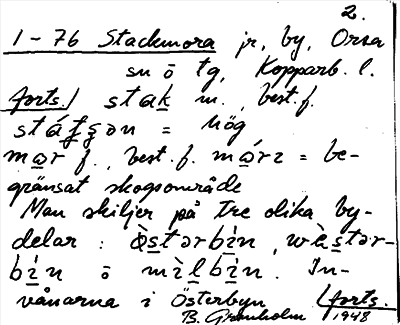 2.
1-76 Stackmora jr, by, Orsa
sn o tg, Kopparb. l.
forts./ stak m., best. f.
= hög
mar f., best. f. = be-
gränsat skogsområde
Man skiljer på tre olika by-
delar: östərbín, wèstər-
bín o mìlbín. In-
vånarna i Österbyn (forts.
B. Granholm 1948